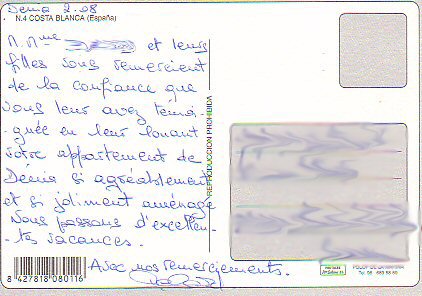 Denia 2.08
N.4 COSTA BLANCA (España)
M. Mme et leurs
filles vous remercient
de la confiance que
vous leur avez témoi-
-gnée en leur louant
votre appartement de
Denia si agréablement
et si joliment aménagé
Nous passons d'excellen-
-tes vacances.
Avec nos remerciements.
REPRODUCCION PROHIBIDA
8 427818 080116